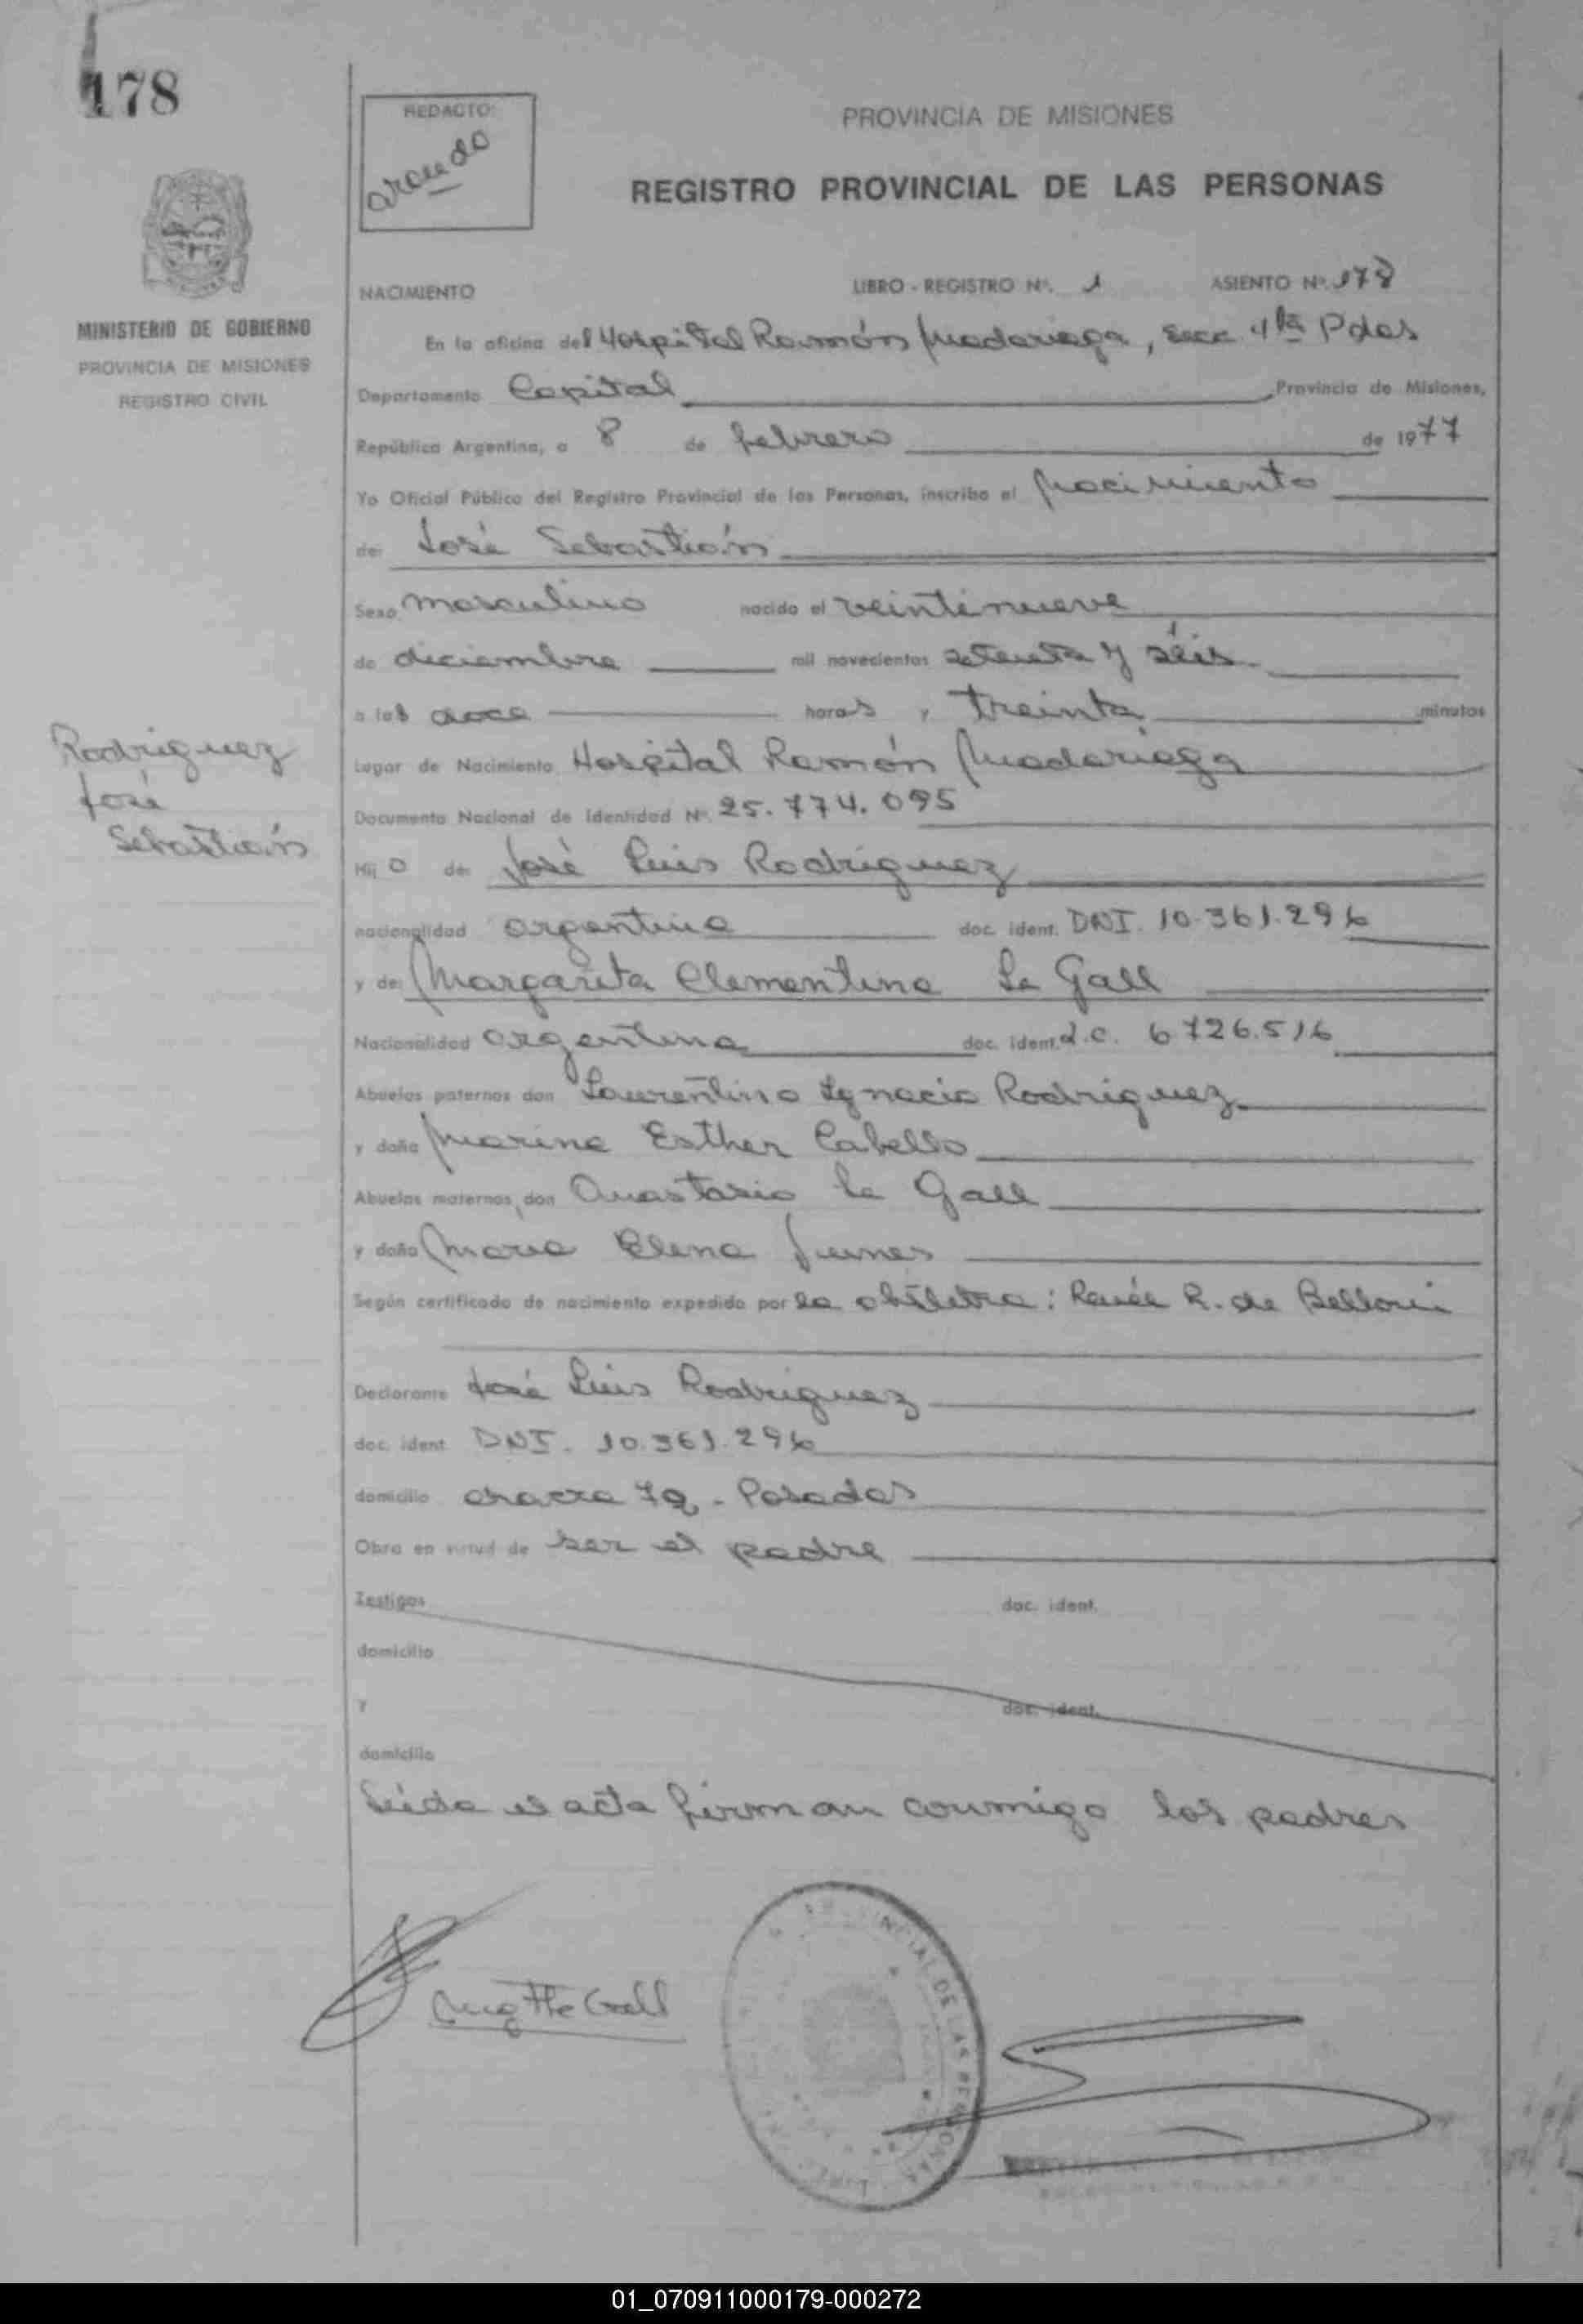 178
REDACTO:
PROVINCIA DE MISIONES
REGISTRO PROVINCIAL DE LAS PERSONAS
NACIMIENTO LIBRO - REGISTRO Nº. 1 ASIENTO Nº. 178
MINISTERIO DE GOBIERNO
PROVINCIA DE MISIONES
REGISTRO CIVIL
En la oficina del Hospital Ramón Madariaga, Secc. 4ta Pdas
Departamento Capital Provincia de Misiones,
República Argentina, a 8 de febrero de 1977
Yo Oficial Público del Registro Provincial de las Personas, inscribo el nacimiento
de: José Sebastián
Sexo masculino nacido el veintinueve
de diciembre mil novecientos setenta y séis
a las doce horas y treinta minutos
Lugar de Nacimiento Hospital Ramón Madariaga
Rodriguez
José
Sebastián
Documento Nacional de Identidad Nº. 25.774.095
Hijo de: José Luis Rodríguez
nacionalidad argentina doc. ident. DNI. 10.361.296
y de: Margarita Clementina Le Gall
Nacionalidad argentina doc. ident. L.C. 6.726.516
Abuelos paternos don Laurentino Ignacio Rodriguez
y doña Marina Esther Cabello
Abuelos maternos, don Anastasio Le Gall
y doña Maria Elena Funes
Según certificado de nacimiento expedido por la obstetra: Renée R. de Belloni
Declarante José Luis Rodriguez
doc. ident. DNI. 10.361.296
domicilio chacra - Posadas
Obra en virtud de ser el padre
Testigos doc. ident.
domicilio
y doc. ident.
domicilio
Leída el acta firman conmigo los padres
Le Gall
DE LAS PERSONAS
01_070911000179-000272